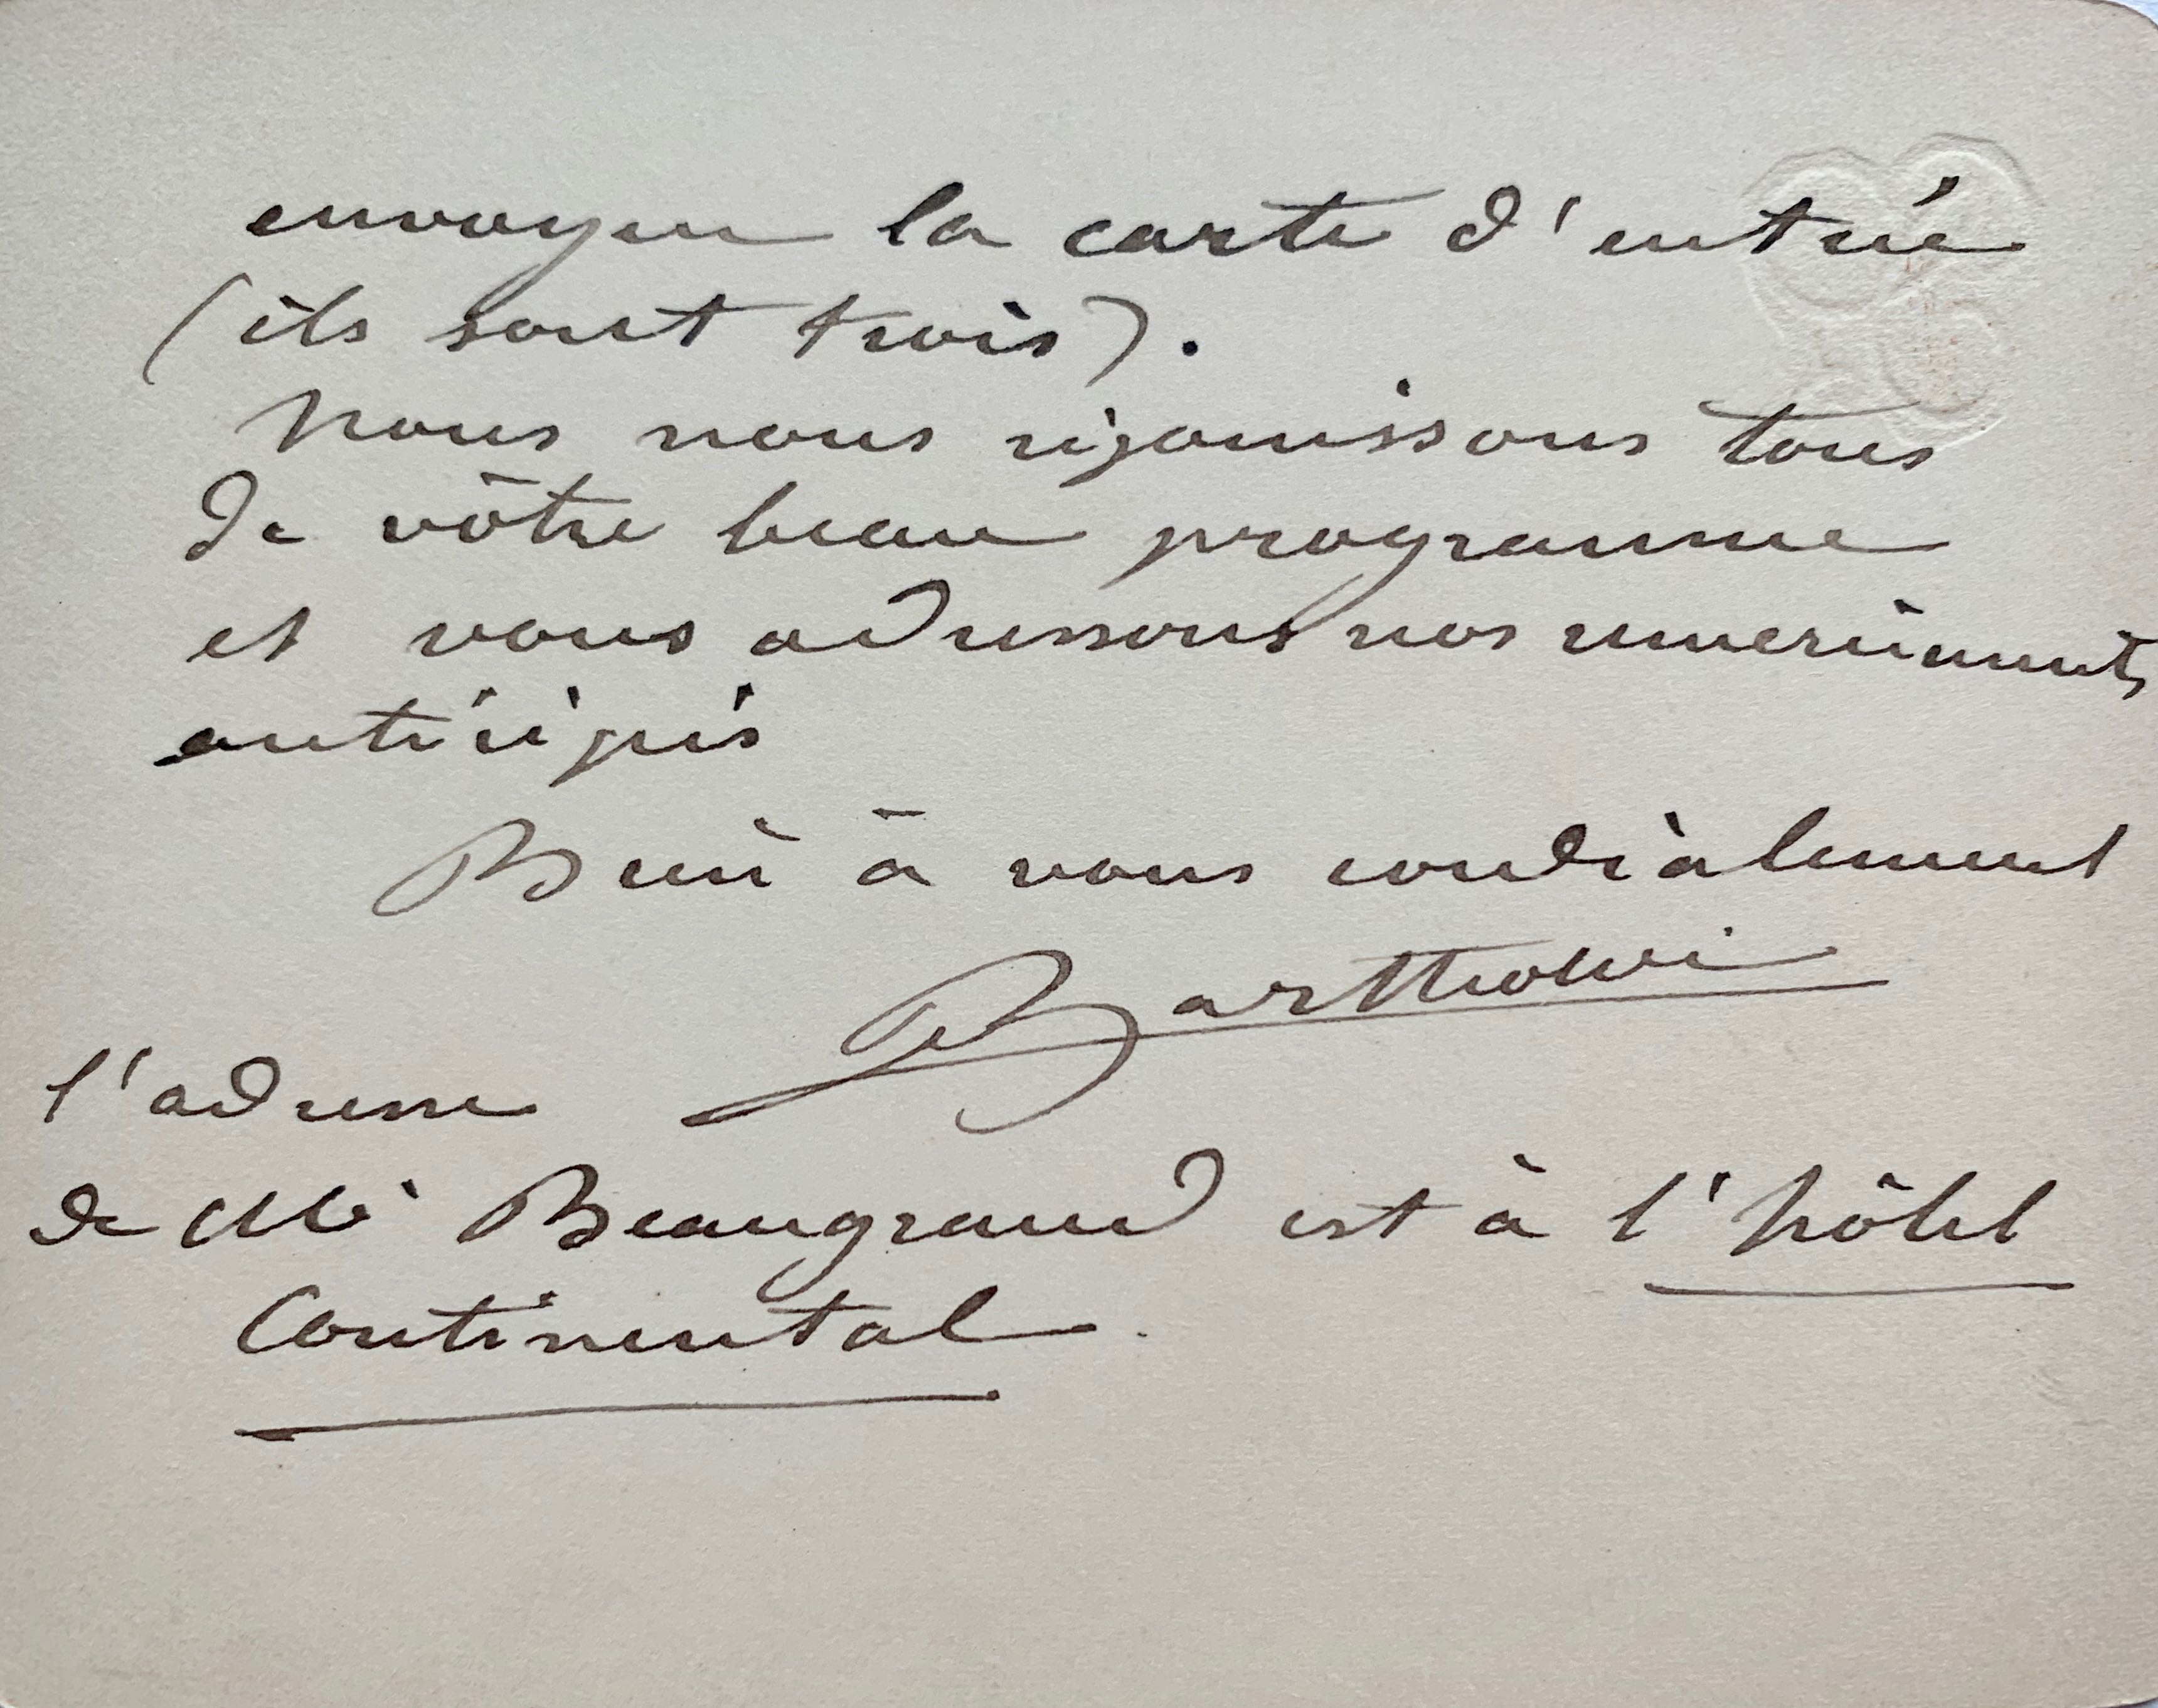 envoyer la carte d'entrée
(ils sont trois).
Nous nous rejouissons tous
de vôtre beau programme
et vous adressons nos remerciments
anticipés
Bien à vous cordialement
Bartholdi
l'adresse
de Mr Beaugrand est à l'hôtel
Continental.